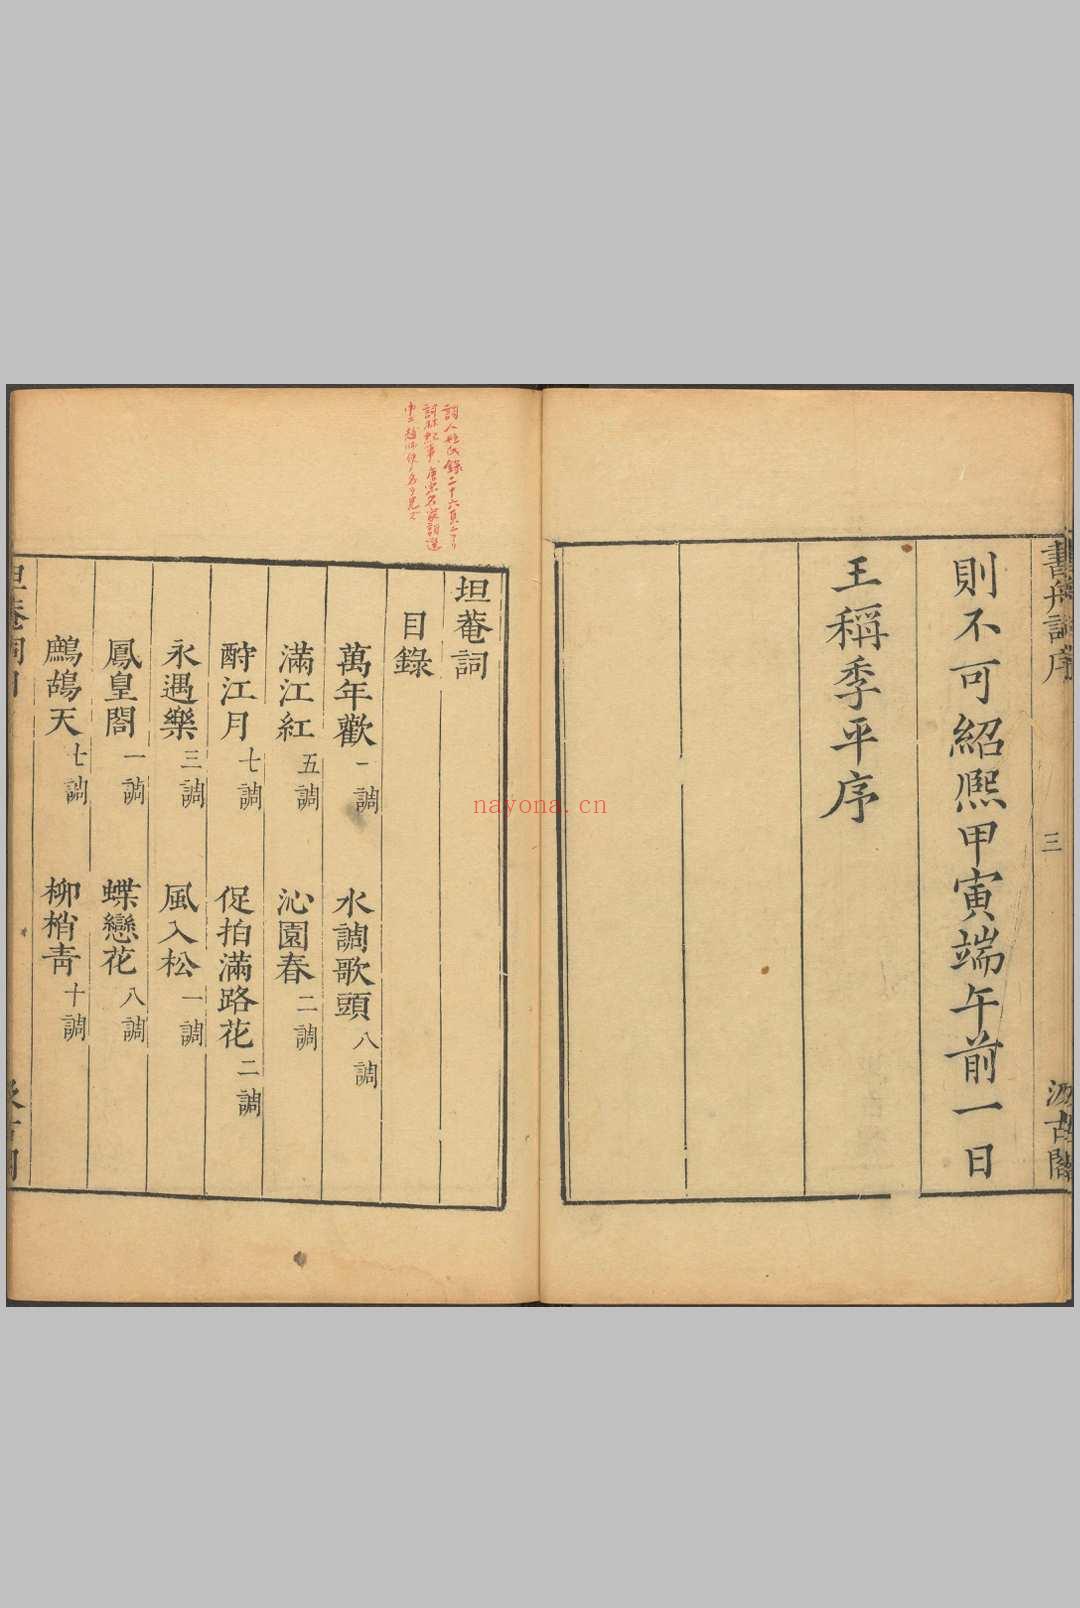 書舟詞序
三
汲古閣
則不可紹熙甲寅端午前一日
王稱季平序
詞人姓氏錄二十六頁ニアリ
詞林紀事、唐宋名家詞選
中ニ趙師使ノ名ヲ見ズ
坦菴詞
目錄
萬年歡一調
水調歌頭八調
滿江紅五調
沁園春二調
酹江月七調
促拍滿路花二調
永遇樂三調
風入松一調
鳳皇閣一調
蝶戀花八調
鷓鴣天七調
柳梢青十調
坦菴詞目
汲古閣
nayona.cn